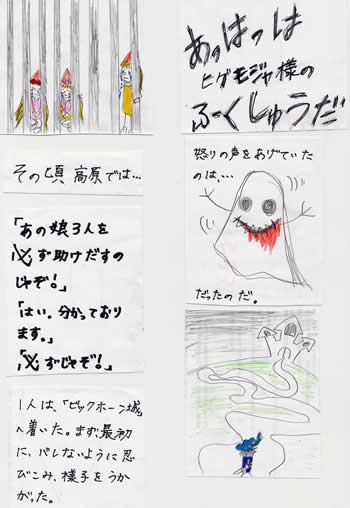 あっはっは
ヒゲモジャ様の
ふーくしゅうだ
怒りの声をあげていた
のは、…
だったのだ。
その頃 高原では…
「あの娘3人を
必ず助けだすの
じゃぞ!」
「はい。分かっており
ます。」
「必ずじゃぞ!」
1人は、「ビックホーン城」
へ着いた。まず、最初
に、バレないように忍
びこみ、様子をうか
がった。